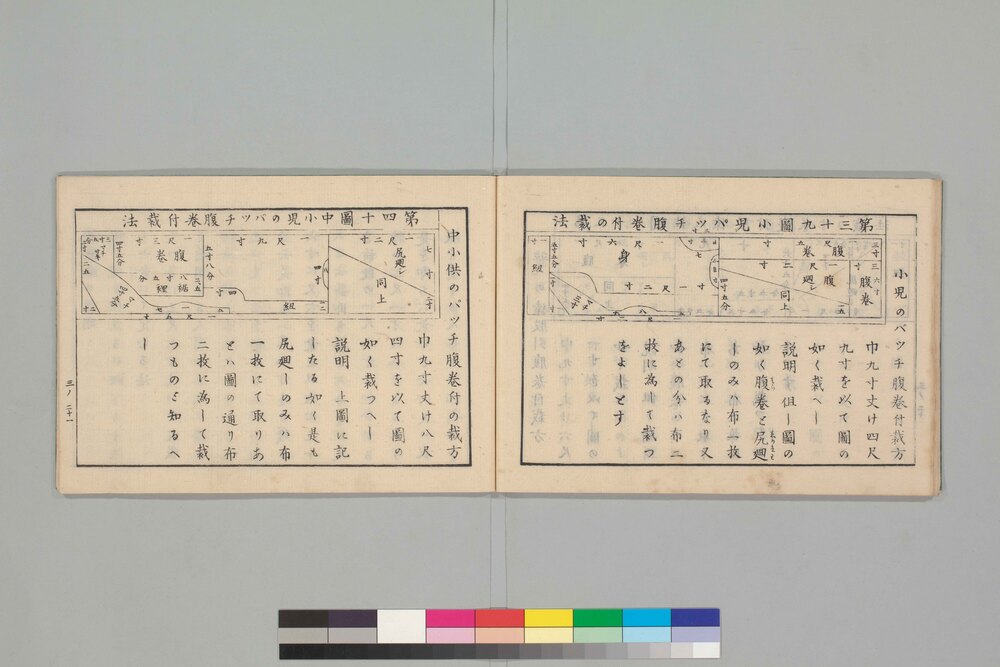 第三十九圖小児パッチ腹巻付の裁法
小児のパッチ腹巻付裁方
巾九寸丈け四尺
九寸を以て圖の
如く裁へし
説明 但し圖の
如く腹巻と尻廻
しのみハ布一枚
にて取るなり又
あとの分ハ布二
枚に為して裁つ
をよしとす
腹巻
腹巻
一尺
尻廻し
同上
四寸五分
身
一尺六寸
一尺二寸
紐
第四十圖中小児のパッチ腹巻付裁法
中小供のパッチ腹巻付の裁方
巾九寸丈け八尺
四寸を以て圖の
如く裁つへし
説明 上圖に記
したる如く是も
尻廻しのみハ布
一枚にて取りあ
とハ圖の通り布
二枚に為して裁
つものと知るへ
し
七寸
尻廻し
同上
一尺二寸
二寸
四寸
一尺九寸
紐
一尺三寸
腹巻
裾裡
四寸五分
三ノ二十一